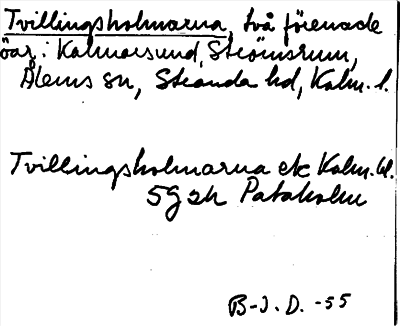 Tvillingsholmarna, två förenade
öar i Kalmarsund, Strömsrum,
Ålems sn, Stranda hd, Kalm. l.
Tvillingsholmarna ek Kalm. bl.
5G2h Pataholm
B-J. D. -55